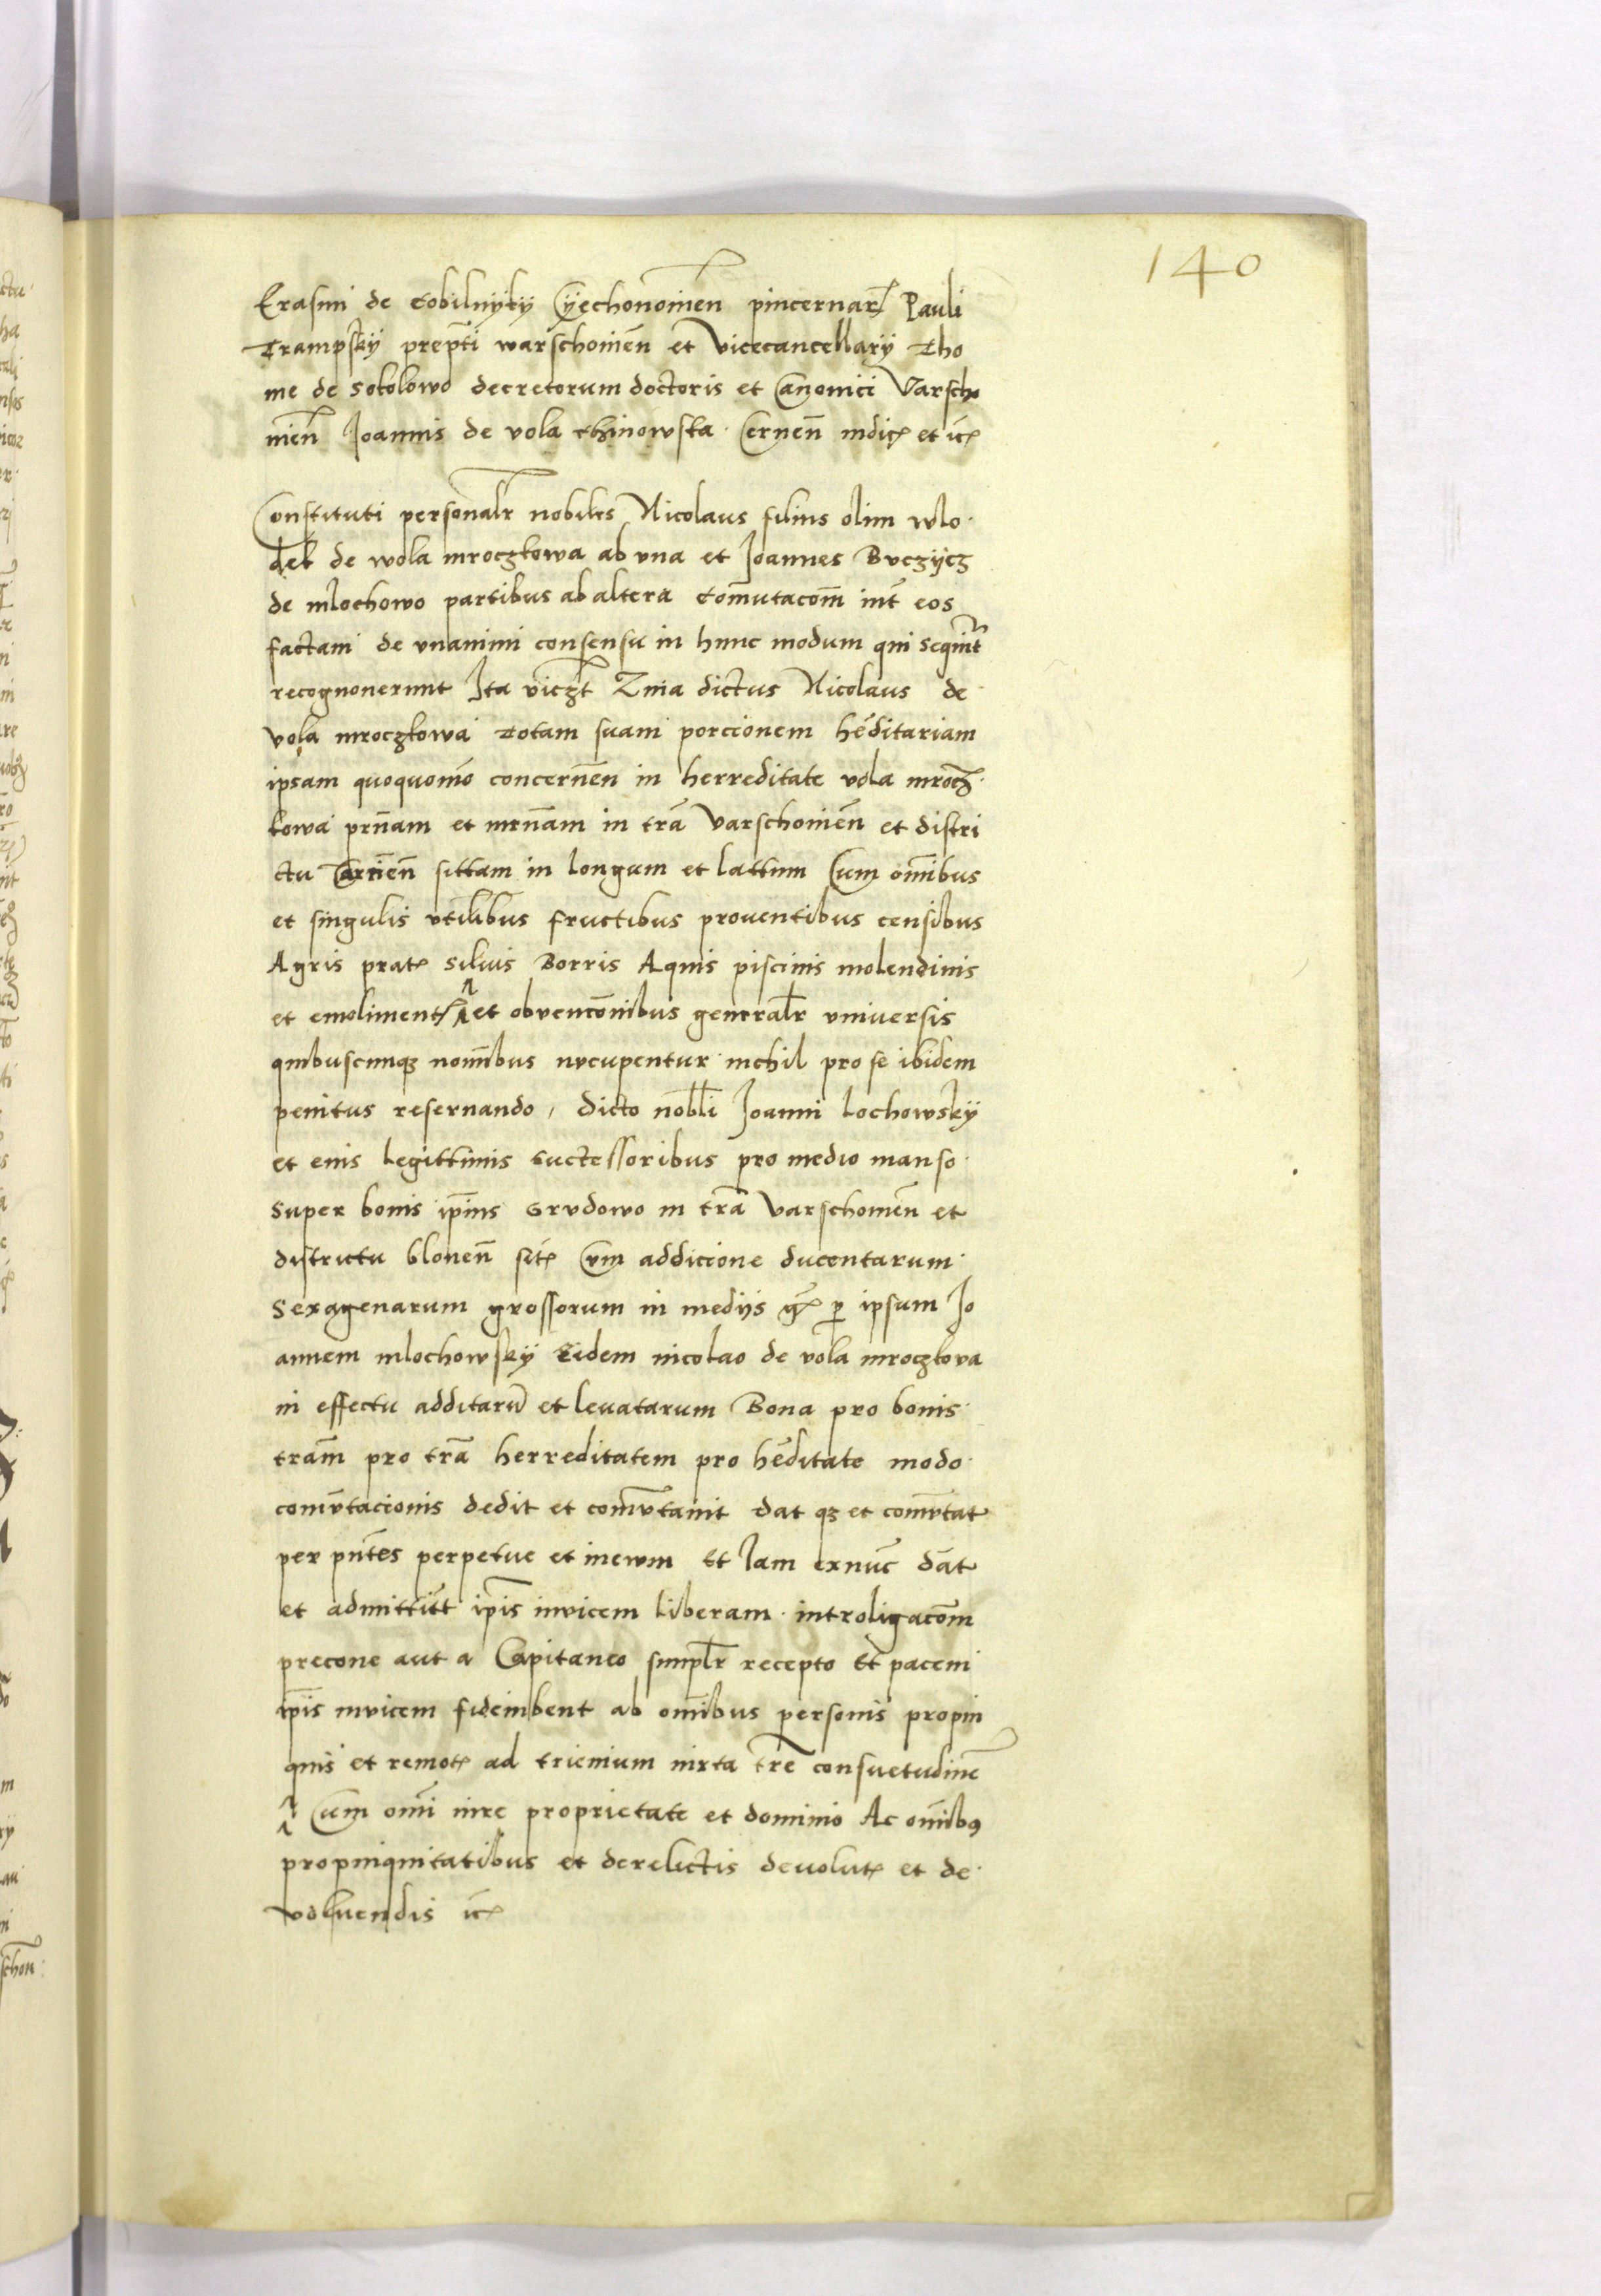 140
Erasmi de Cobilnijkij Cijechonoviēn pincernar Pauli
Trampskij prepti warschouieñ et Vicecancellarij Tho
me de Sokolowo decretorum doctoris et Canonici Varscho
uieñ Joannis de vola Chinowska Cerneñ iudic et ic
Constituti personalr nobiles Nicolaus filius olim wlo
dek de wola mroczkowa ab vna et Joannes Buczijcz
de mlochowo partibus ab altera Comutacom int eos
factam de vnanimi consensu in hunc modum qui sequit
recognouerunt Ita viczt dictus Nicolaus de
vola mroczkowa Totam suam porcionem heditariam
ipsam quoquomo concerneñ in herreditate vola mrocz
kowa prnam et mrnam in tra Varschouieñ et distri
ctu Tarcieñ sittam in longum et lattum Cum omibus
et singulis vtilibus fructibus prouentibus censibus
Agris prat siluis Borris Aquis piscinis molendinis
et emoliment et obvencōnibus generalr vniuersis
quibuscunqz nomibus nvcupentur nichil pro se ibidem
penitus reseruando, dicto nobli Joanni lochowskij
et eius legittimis suctessoribus pro medio manso
super bonis ipius Grvdowo in tra Varschouieñ et
districtu bloneñ sit Cvm addicione ducentarum
Sexagenarum grossorum in medijs g p ipsum Jo
annem mlochowskij Eidem nicolao de vola mroczkova
in effectu additarū et leuatarum Bona pro bonis
tram pro tra herreditatem pro heditate modo
comutacionis dedit et comutauit dat qz et comutat
per pntes perpetue et inewm Et Iam exnuc dat
et admittit ipis invicem liberam introligacom
precone aut a Capitaneo simplr recepto Et pacem
ipis invicem fideiubent ab omibus personis propin
quis et remot ad trienium iuxta tre consuetudinē
Cum omi iure proprietate et dominio Ac omibus
propinquitatibus et derelictis deuolut et de
voluendis ic